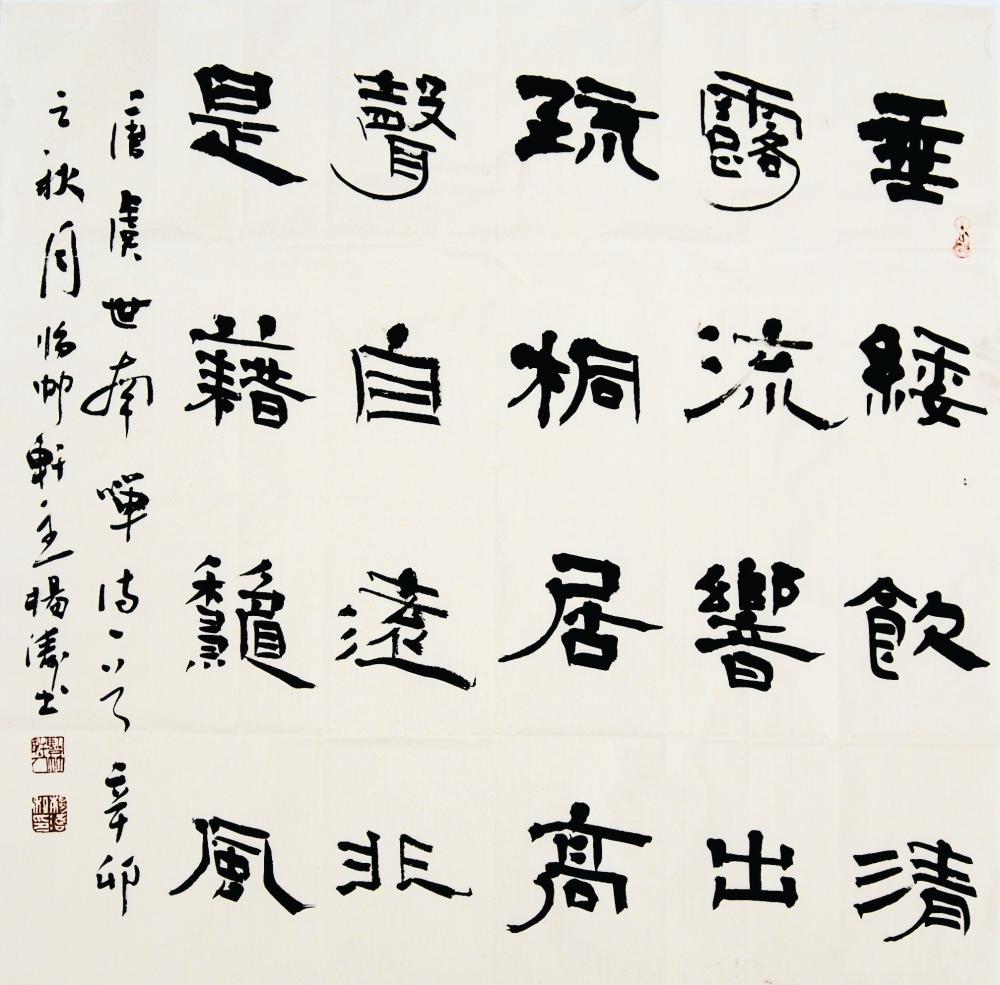 垂緌飲清
露流響出
疏桐居高
聲自遠非
是藉龝風
唐虞世南蝉诗一首辛卯
之秋月轩主楊濤书